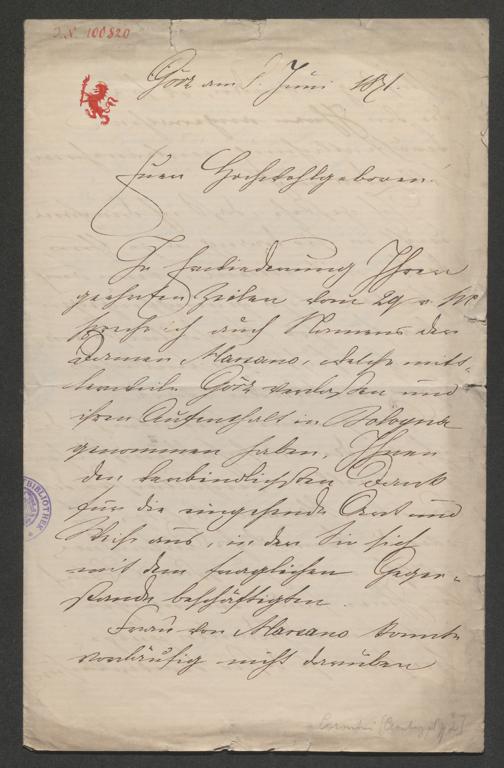 J.N. 100820
Görz am 6. Juni 1871.
Euer Hochwohlgeboren!
In Erwiederung Ihrer
geehrten Zeilen vom 29 v. Mts
spreche ich auch Namens der
Damen Marsano, welche mitt-
lerweile Görz verlaßen und
ihren Aufenthalt in Bologna
genommen haben, Ihnen
den verbindlichsten Dank
für die eingehende Art und
Weise aus, in der Sie sich
mit dem fraglichen Gegen-
stande beschäftigten.
BIBLIOTHEK
Frau von Marsano konnte
vorläufig nicht darüber